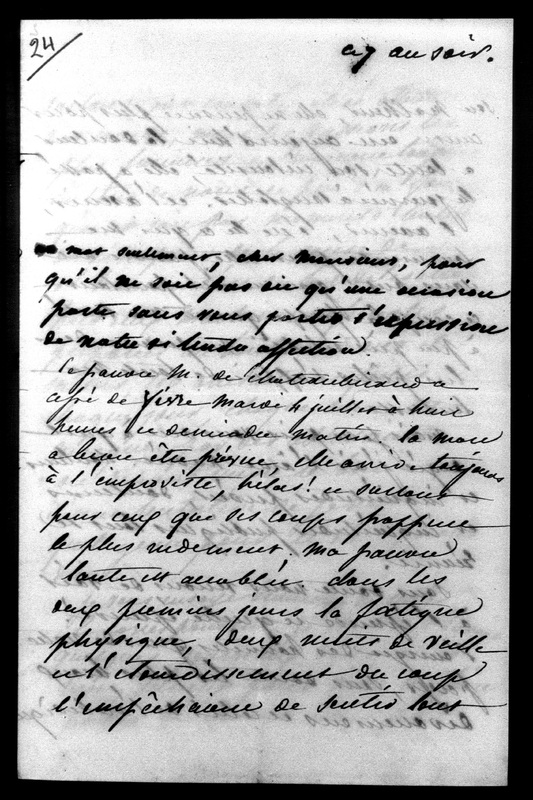 24
ce 7 au soir.
un mot seulement, cher monsieur, pour
qu'il ne soit pas dit qu'une occasion
parte sans vous porter l'expression
de notre si tendre affection.
Le pauvre M. de Chateaubriand a
cessé de vivre mardi 4 juillet à huit
heures et demie du matin. la mort
a beau être prévue, elle arrive toujours
à l'improviste, hélas! et surtout
pour ceux que ses coups frappent
le plus rudement. ma pauvre
tante est accablée. dans les
deux premiers jours la fatigue
physique, deux nuits de veille
et l'étourdissement du coup
l'empêchaient de sentir tout